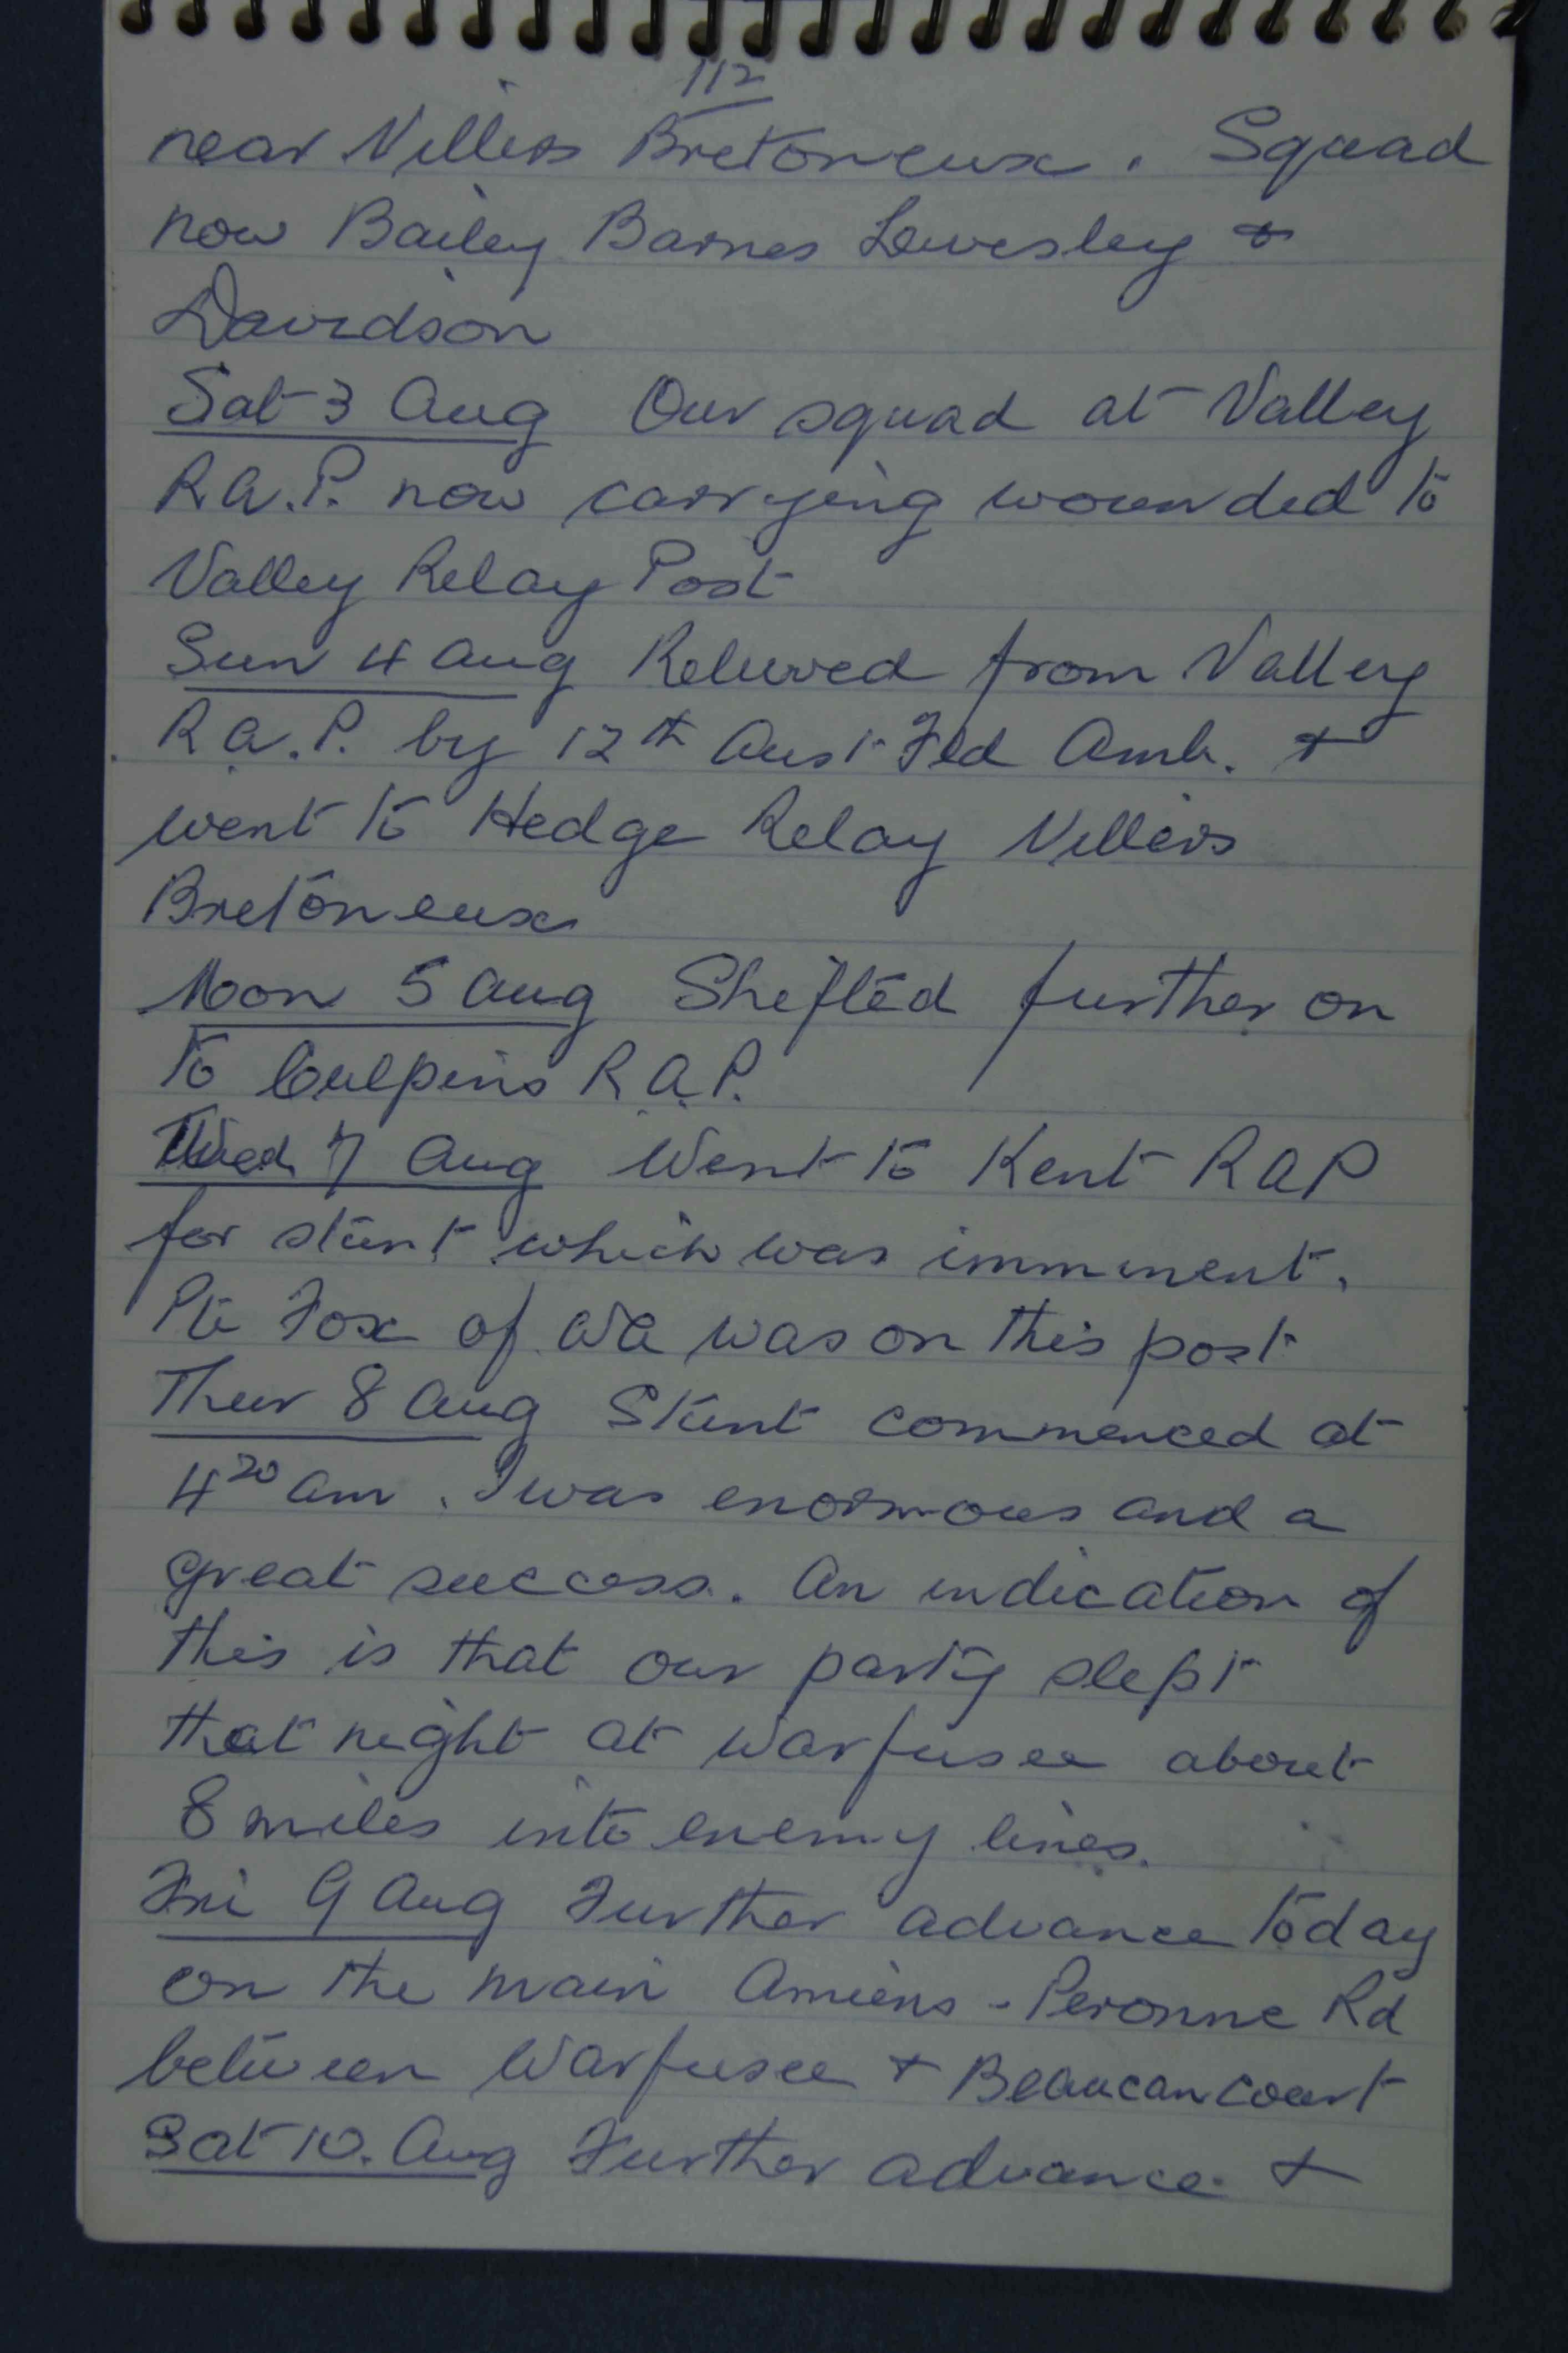 112
near Villers Bretoneux. Squad
now Bailey Barnes Livesley +
Davidson
Sat 3 Aug Our squad at Valley
R.A.P. now carrying wounded to
Valley Relay Post
Sun 4 Aug Relieved from Valley
R.A.P. by 12th Aust Fld Amb. +
went to Hedge Relay Villers
Bretoneux
Mon 5 Aug Shifted further on
to Culpins R.A.P.
Wed 7 Aug Went to Kent RAP
for stunt which was imminent.
Pte Fox of WA was on this post
Thur 8 Aug Stunt commenced at
4 20 am. I was enormous and a
great success. An indication of
this is that our party slept
that night at Warfusee about
8 miles into enemy lines.
Fri 9 Aug Further advance today
on the main Amiens - Peronne Rd
between Warfusee + Beaucancourt
Sat 10. Aug Further advance +